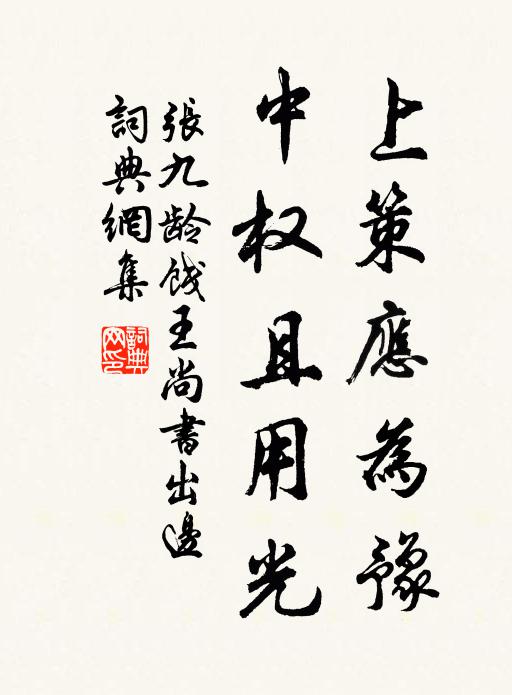 上策應為豫
中权且用光
張九龄餞王尚書出邊
詞典網集
詞典网印